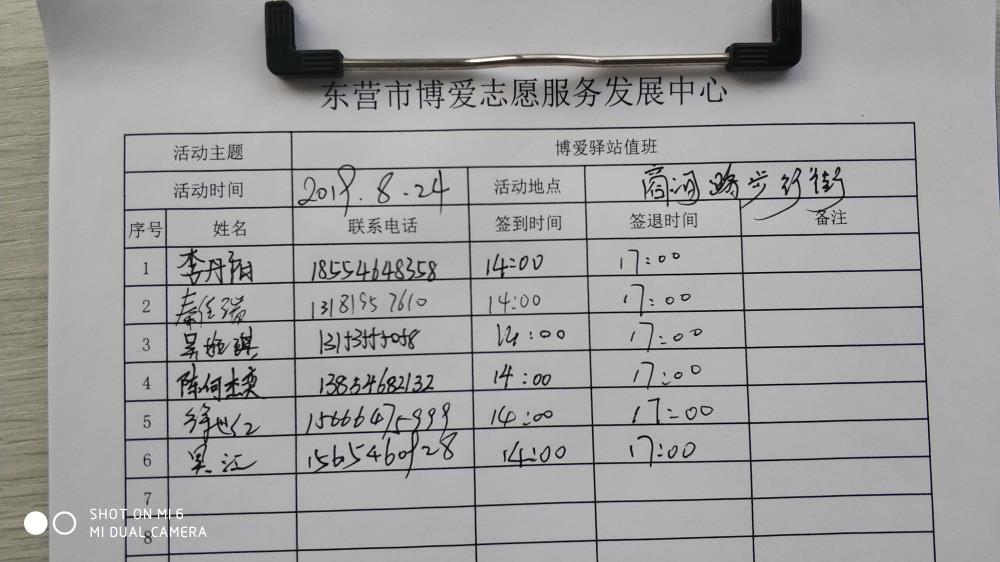 东营市博爱志愿服务发展中心
活动主题 博爱驿站值班
活动时间 2019.8.24 活动地点 商河路步行街
序号 姓名 联系电话 签到时间 签退时间 备注
1 李丹阳 18554648358 14:00 17:00
2 13181957610 14:00 17:00
3 14:00 17:00
4 陈何杰奕 13854682132 14:00 17:00
5 15666475999 14:00 17:00
6 吴江 14:00 17:00
7
8
SHOT ON MI 6
MI DUAL CAMERA